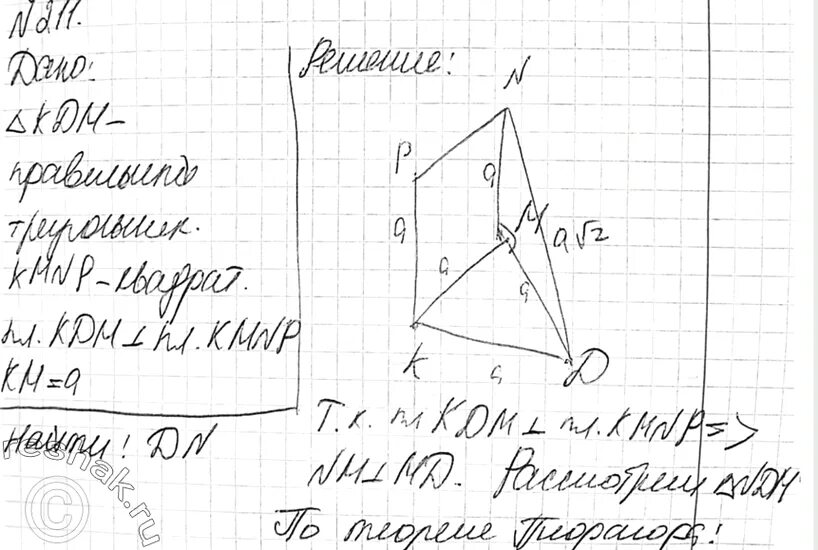 N211.
Дано:
△KDM–
правильный
треугольник.
KMNP – квадрат.
пл. KDM ⊥ пл. KMNP
KM = a
Найти: DN
Решение:
N
P
a
a
M
a√2
a
a
K
a
D
Т.к. пл KDM ⊥ пл. KMNP =>
NM ⊥ MD. Рассмотрим △NDM
По теореме Пифагора:
reshak.ru
©